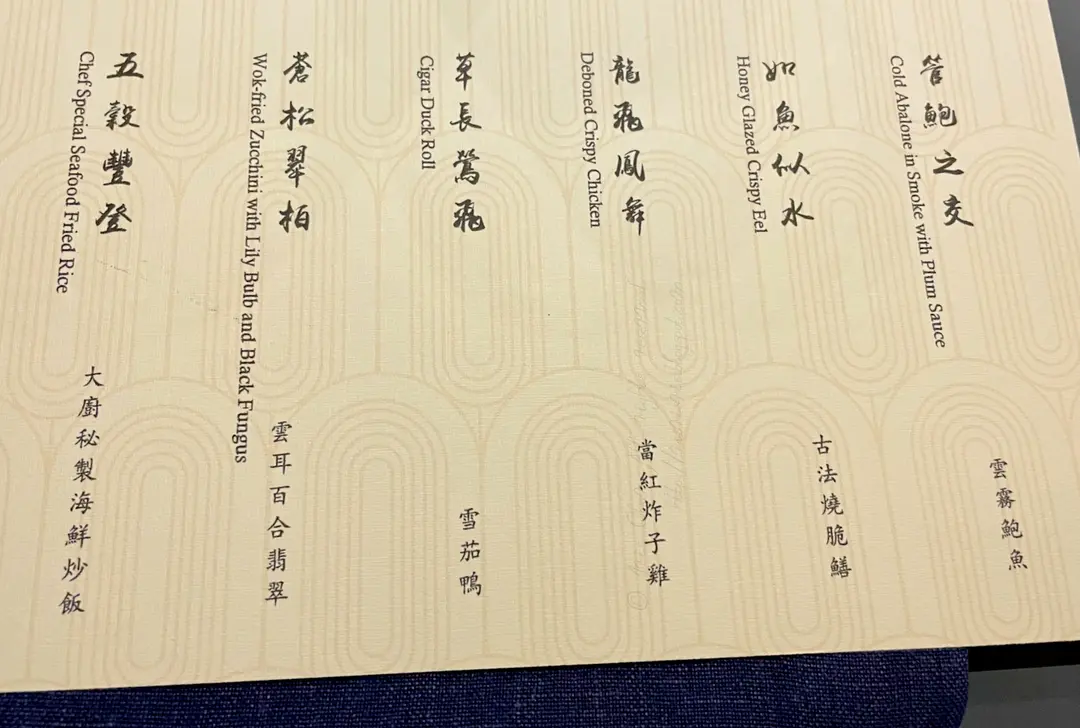 管鮑之交
Cold Abalone in Smoke with Plum Sauce
雲霧鮑魚
如魚似水
Honey Glazed Crispy Eel
古法燒脆鱔
龍飛鳳舞
Deboned Crispy Chicken
當紅炸子雞
草長鶯飛
Cigar Duck Roll
雪茄鴨
蒼松翠柏
Wok-fried Zucchini with Lily Bulb and Black Fungus
雲耳百合翡翠
五穀豐登
Chef Special Seafood Fried Rice
大廚秘製海鮮炒飯